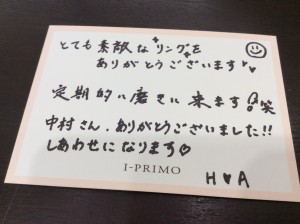 とても素敵なリングを
ありがとうございます♥♥
定期的に磨きに来ます!!笑
中村さん、ありがとうございました!!
しあわせになります♡
I-PRIMO
H♥A